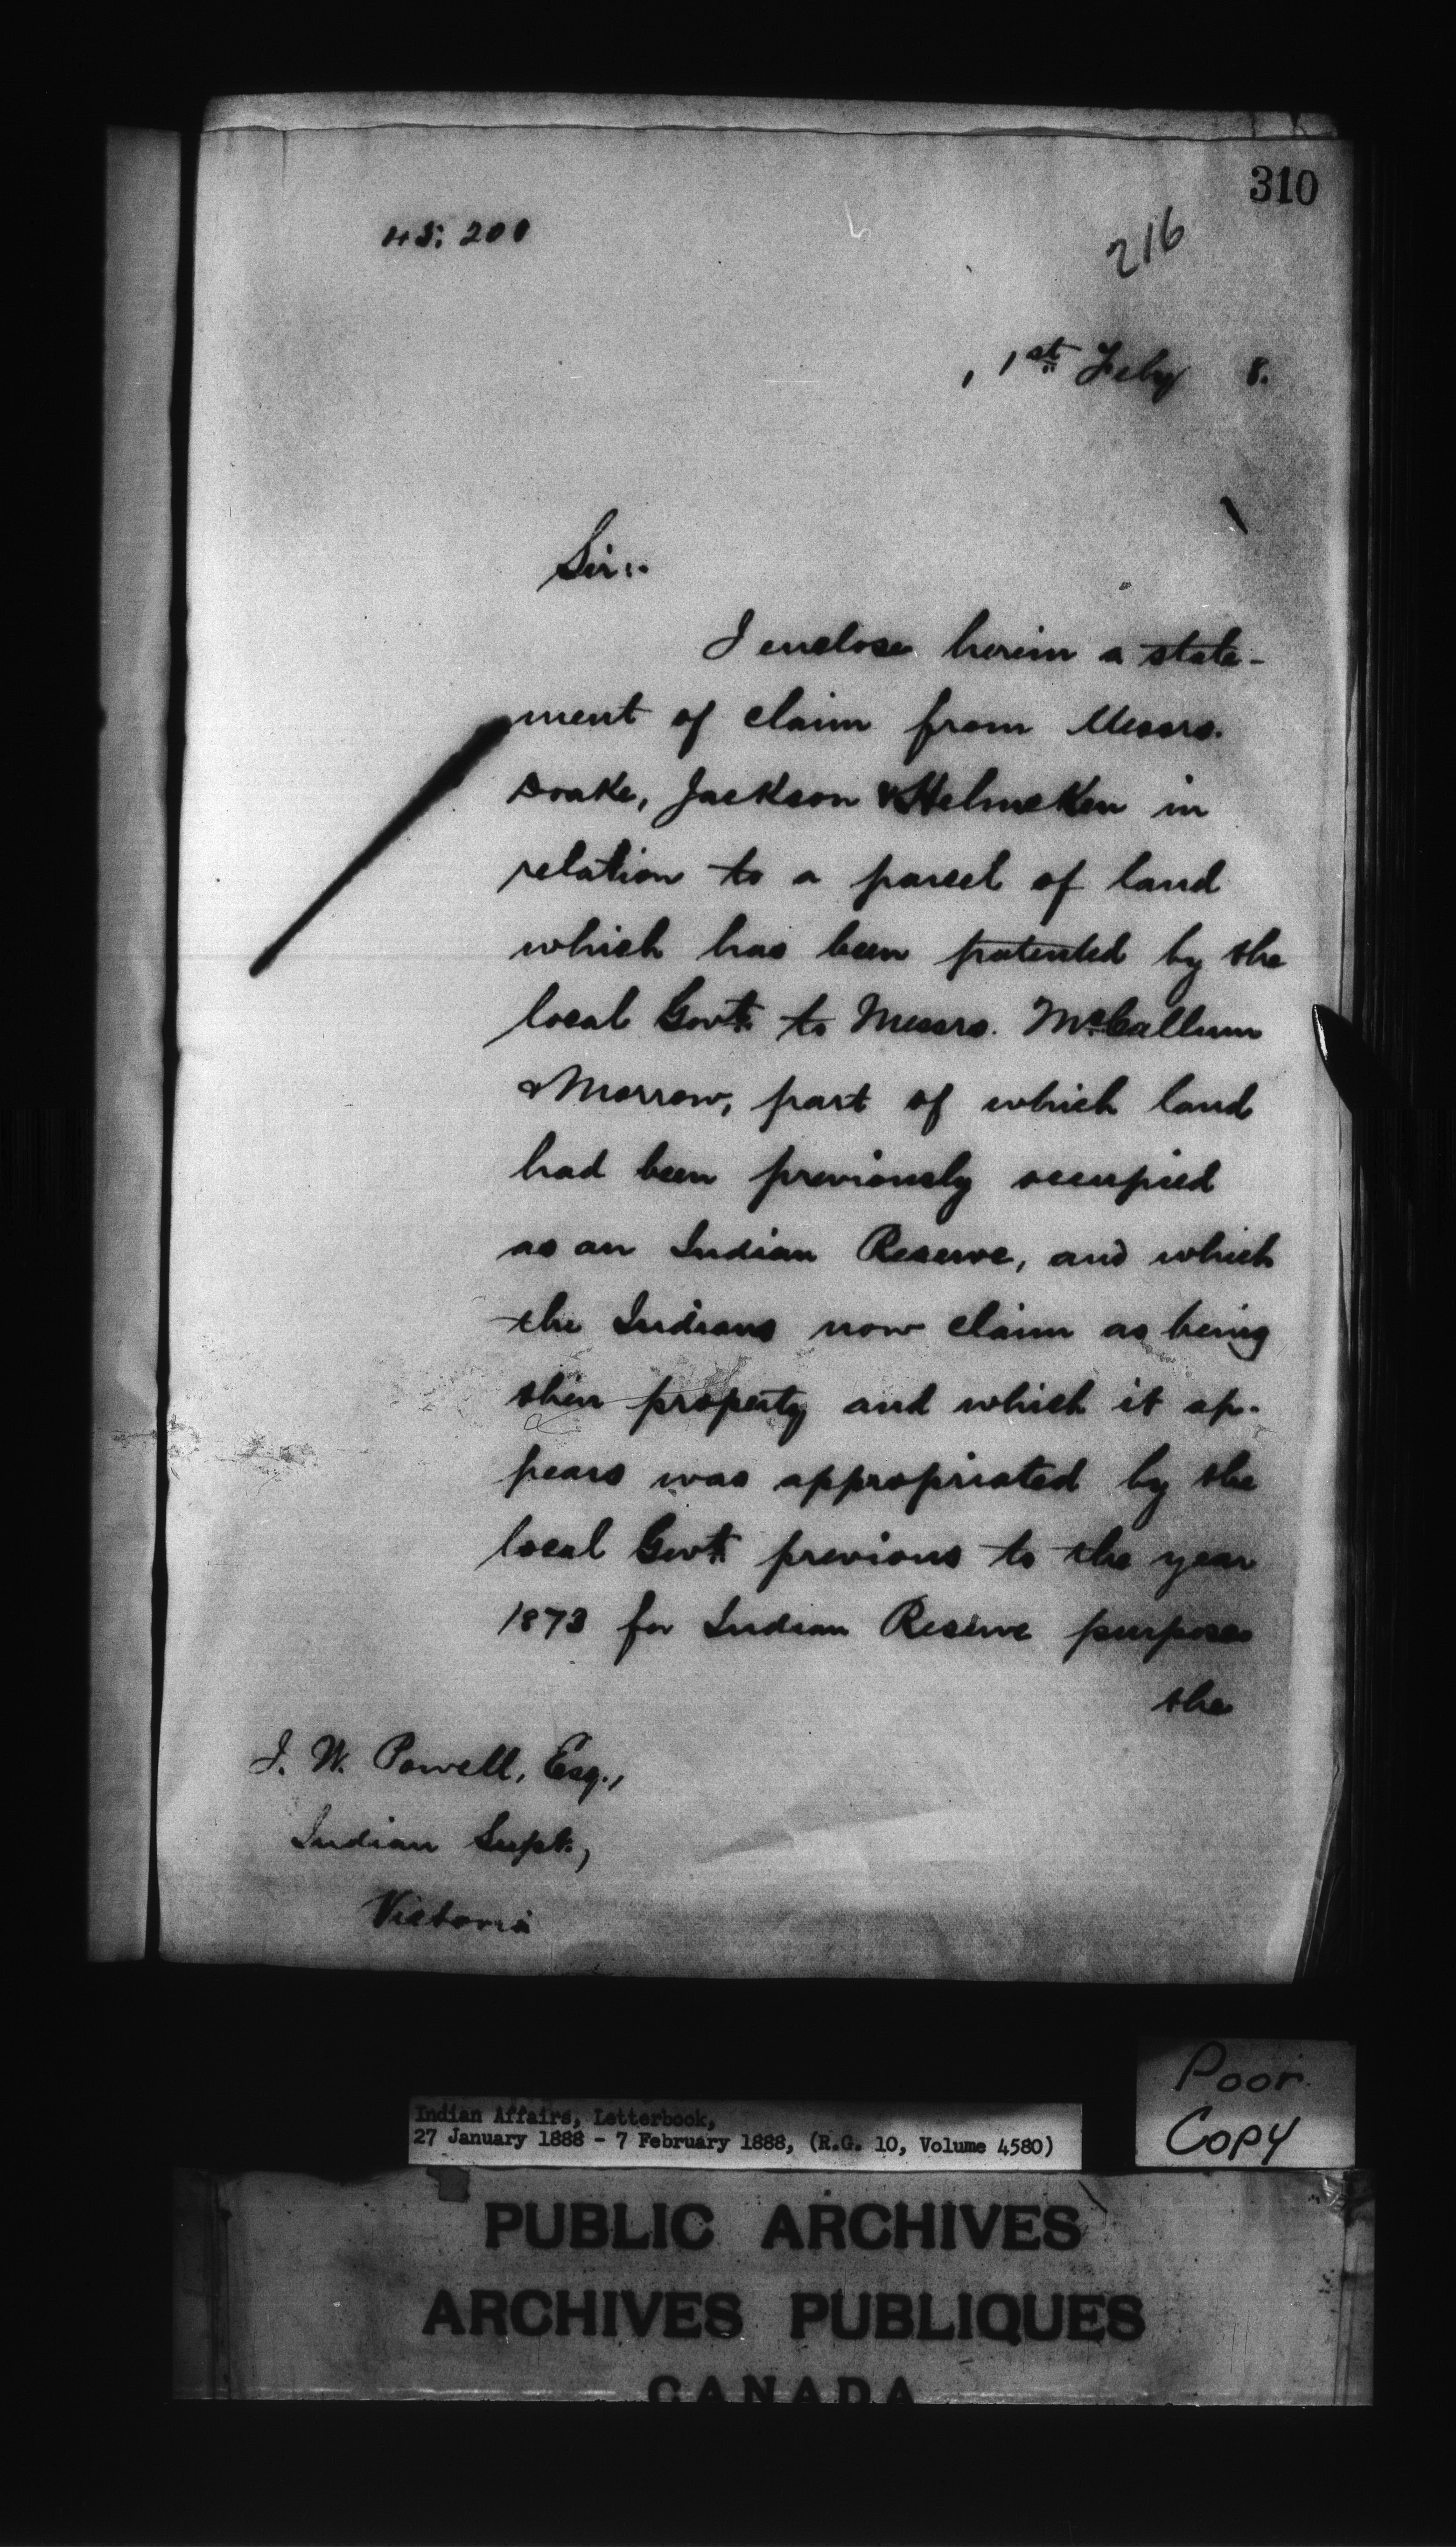 310
45.200
216
1st Feby 8.
Sir:-
I enclose herein a state-
ment of claim from Messrs.
Drake, Jackson & Helmcken in
relation to a parcel of land
which has been patented by the
local Govt. to Messrs. McCallum
& Morrow, part of which land
had been previously occupied
as an Indian Reserve, and which
the Indians now claim as being
their property and which it ap-
pears was appropriated by the
local Govt. previous to the year
1873 for Indian Reserve purposes
the
I. W. Powell, Esq.,
Indian Supt.,
Victoria
Poor
Copy
Indian Affairs, Letterbook,
27 January 1888 - 7 February 1888, (R.G. 10, Volume 4580)
PUBLIC ARCHIVES
ARCHIVES PUBLIQUES
CANADA